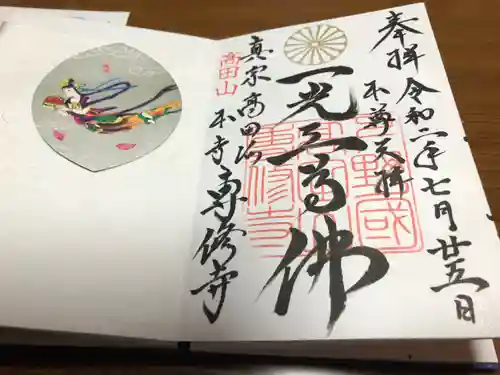 奉拝 令和二年七月廿五日
本尊天拝
一光三尊佛
高田山
真宗高田派
本寺専修寺